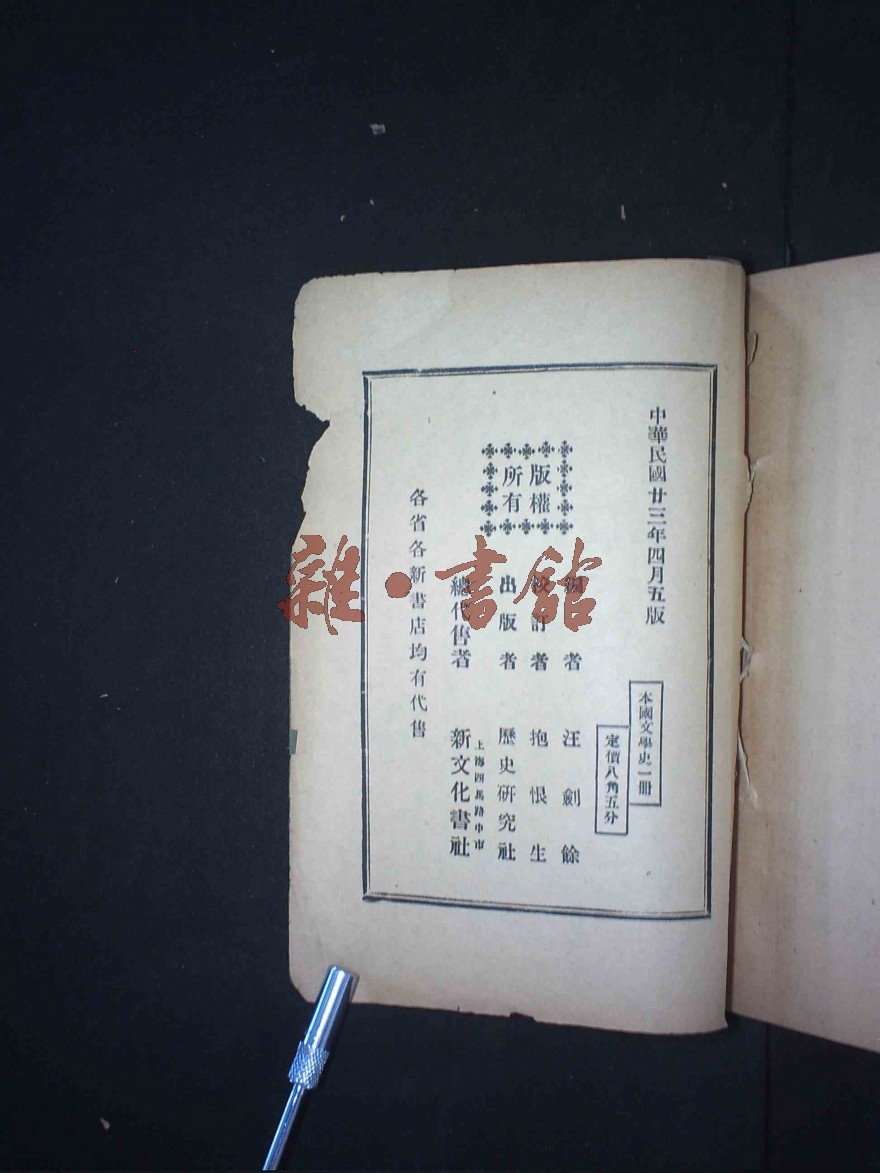 中華民國廿三年四月五版
本國文學史一冊
定價八角五分
版權
所有
編者 汪劍餘
校訂者 抱恨生
出版者 歷史研究社
總代售者 上海四馬路中市 新文化書社
各省各新書店均有代售
雜·書館